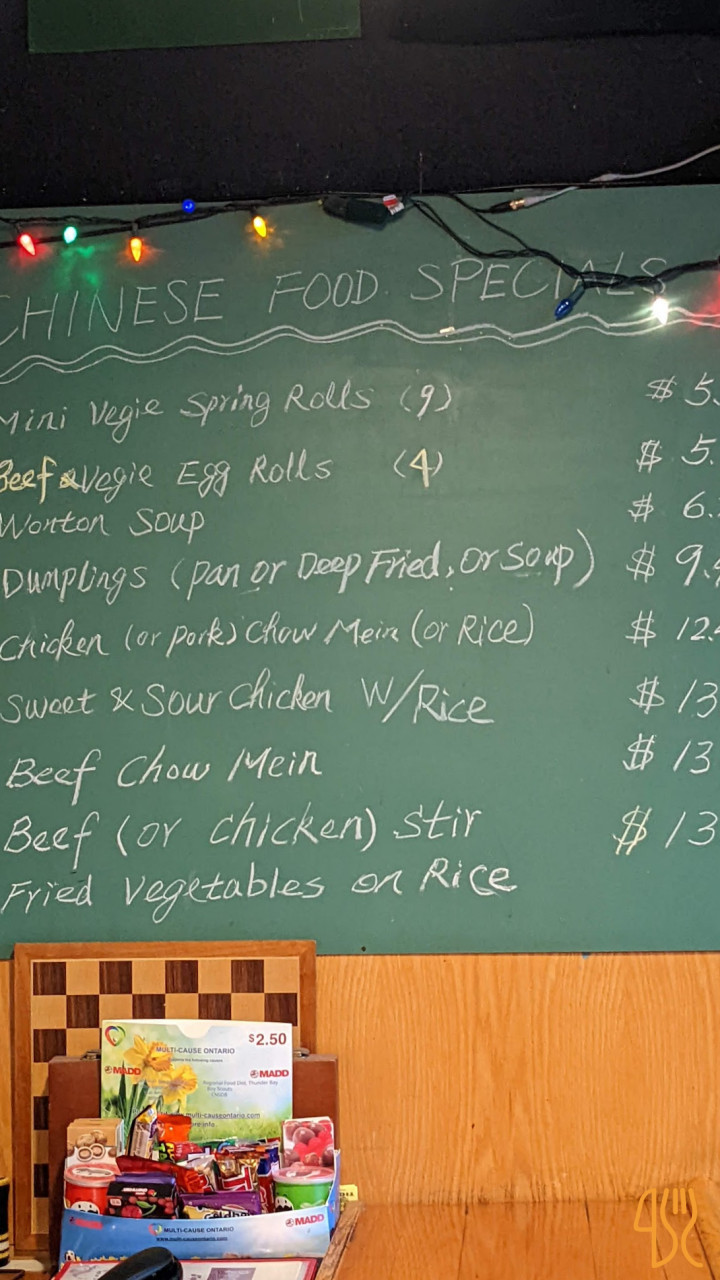 CHINESE FOOD SPECIALS
Mini Vegie Spring Rolls (9) $ 5.
Beef & Vegie Egg Rolls (4) $ 5.
Wonton Soup $ 6.
Dumplings (Pan or Deep Fried, or Soup) $ 9.
Chicken (or pork) Chow Mein (or Rice) $ 12.
Sweet & Sour Chicken W/Rice $ 13
Beef Chow Mein $ 13
Beef (or chicken) Stir $ 13
Fried Vegetables on Rice
$2.50
MULTI-CAUSE ONTARIO
MADD
MADD
Regional Food Dist. Thunder Bay
www.multi-causeontario.com
MADD
MULTI-CAUSE ONTARIO
www.multi-causeontario.com